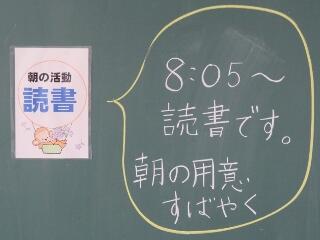 朝の活動
読書
8:05〜
読書です。
朝の用意
すばやく